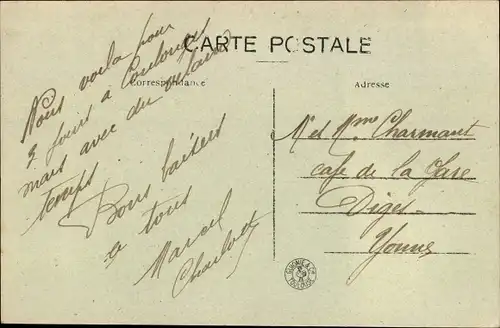 CARTE POSTALE
Correspondance
Adresse
Nous voilà pour
3 jours à Coulonges
mais avec du
temps
Bons baisers
à tous
Marcel
M et Mme Charmant
café de la Gare
Diges
Yonne
TOULOUSE